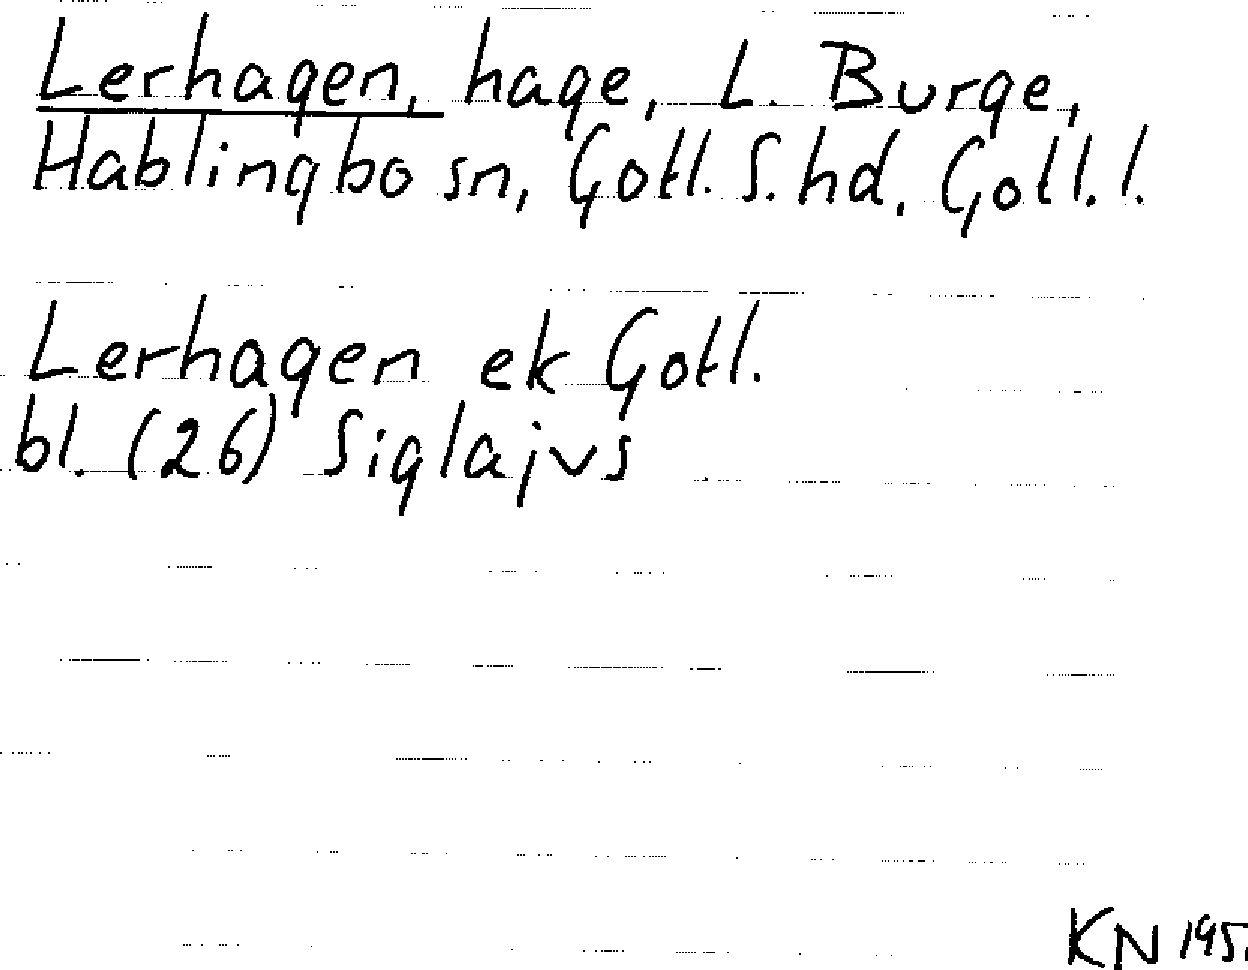 Lerhagen, hage, L. Burge,
Hablingbo sn, Gotl. S. hd, Gotl. l.
Lerhagen ek Gotl.
bl. (26) Siglajvs
KN